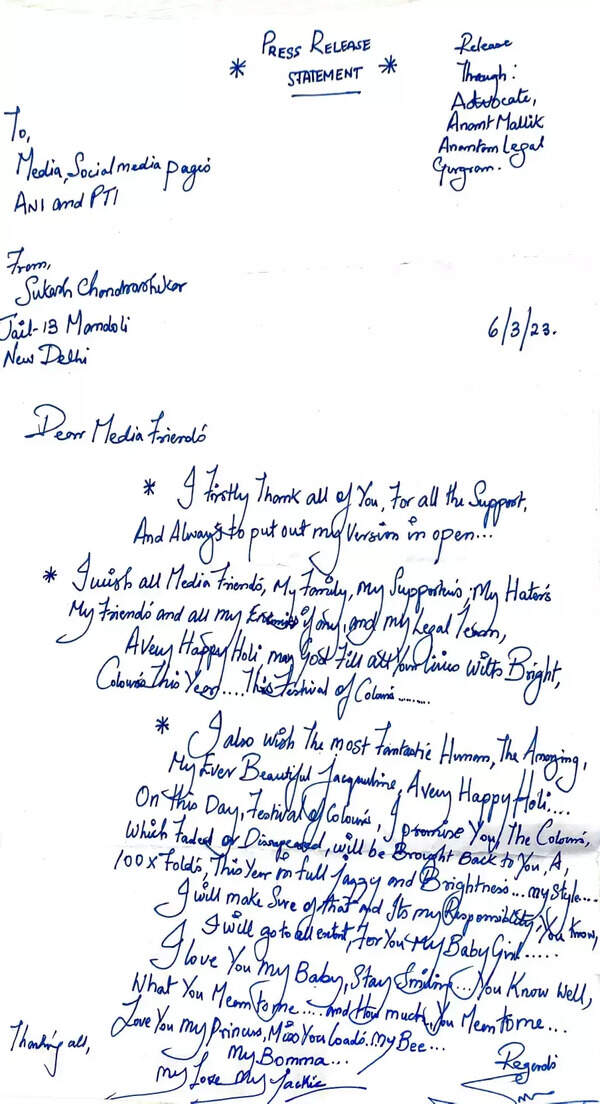 * PRESS RELEASE *
STATEMENT
Release
Through:
Advocate,
Anant Mallik
Anantam Legal
Gurgram.
To,
Media, Social media pages
ANI and PTI
From,
Sukash Chandrashekar
Jail-13 Mandoli
New Delhi
6/3/23.
Dear Media Friends
* I Firstly Thank all of You, For all the Support,
And Always to put out my Version in open...
* I wish all Media Friends, My Family, my Supporters, My Haters
My Friends and all my if any, and my Legal Team,
A Very Happy Holi, may God Fill all Your lives With Bright,
Colours This Year.... This Festival of Colours.........
* I also wish The most Fantastic Human, The Amazing,
My Ever Beautiful Jacqueline, A very Happy Holi....
On this Day, Festival of Colours, I promise You, The Colours,
Which Faded or Disapeared, will be Brought Back to You, A,
100 x Folds, This Year in full jazzy and Brightness... my Style...
I will make Sure of that and Its my Responsibility, You Know,
I will go to all extent, For You My Baby Girl.....
I love You my Baby, Stay Smiling... You Know Well,
What You Mean to me.... and How much You Mean to me...
Love You my Princess, Miss You Loads. My Bee...
My Bomma...
my Love My Jackie
Thanking all,
Regards